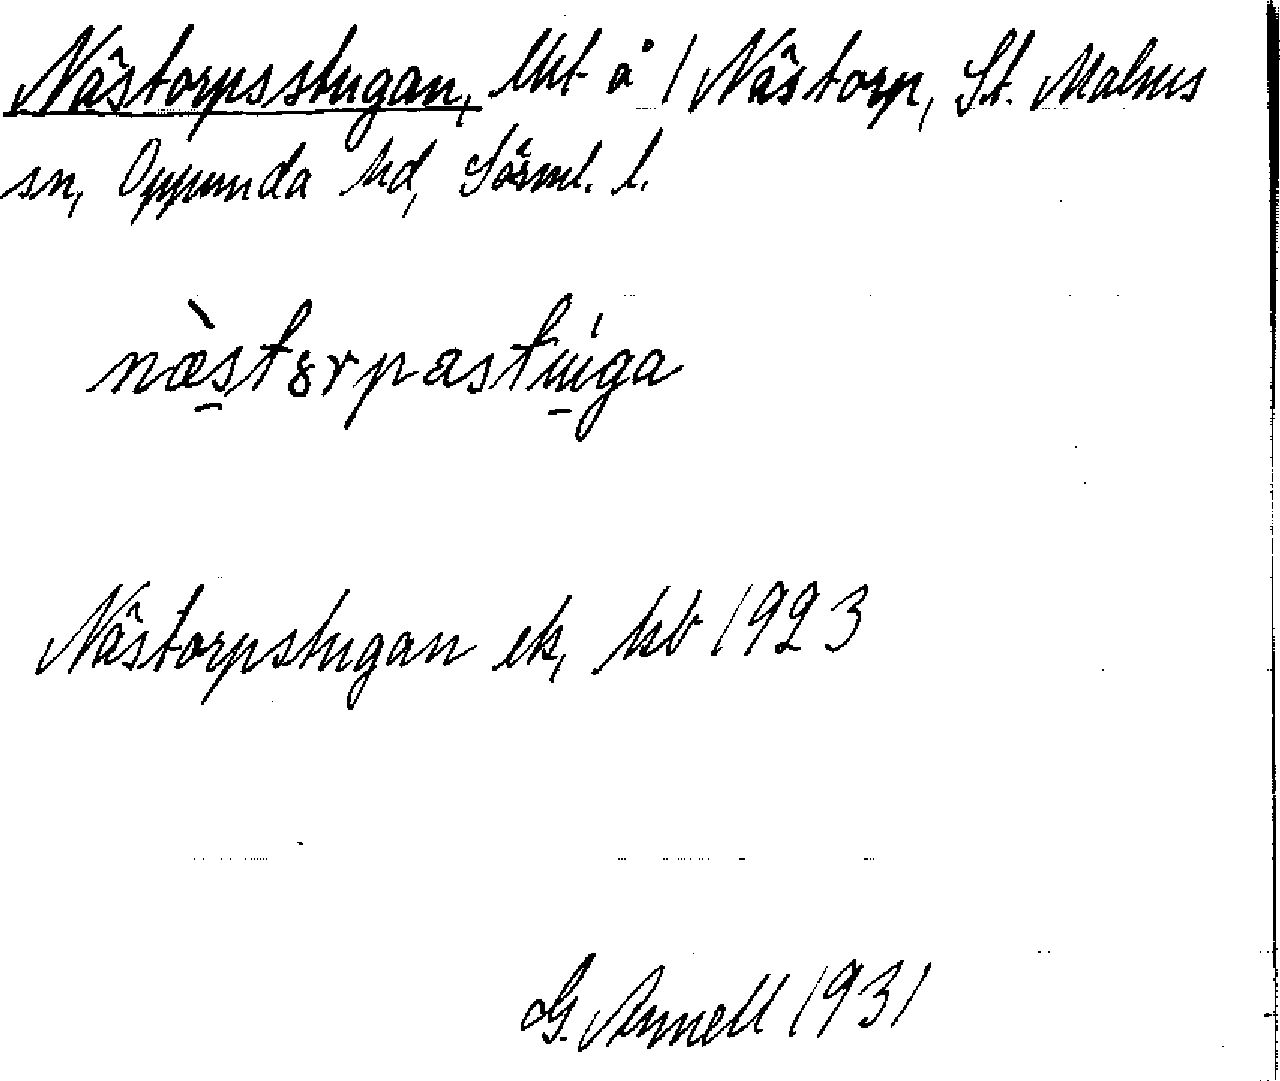 Nästorpsstugan, lht å / Nästorp, St. Malms
sn, Oppunda hd, Sörml. l.
næ̀stɜrpastúga
Nästorpstugan ek, kb 1923
G. Annell 1931